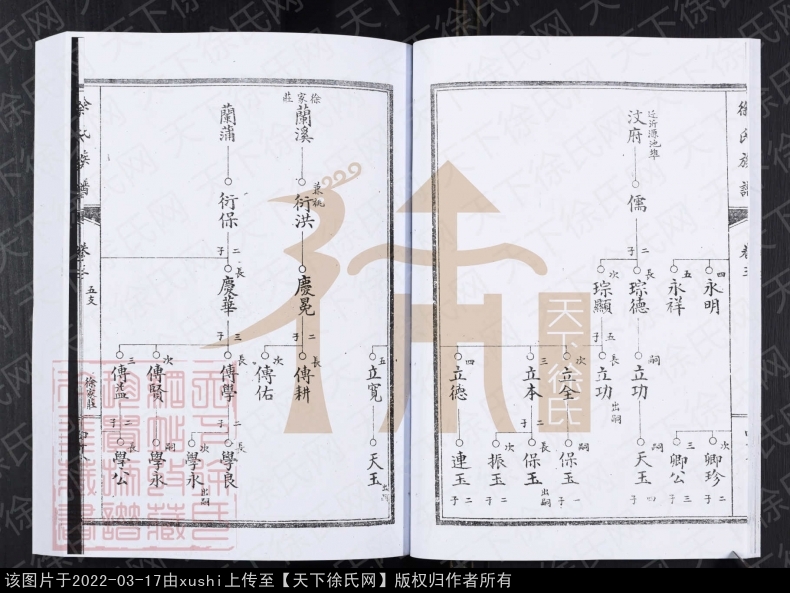 徐氏族譜
卷三
近沂源池埠
汶府
儒
二子
四
永明
五
永祥
長
琮德
次
琮顯
五子
嗣
立功
長
立功
出嗣
次
立全
三
立本
四
立德
次
卿珍
二子
三
卿公
三子
嗣
天玉
四子
嗣
保玉
一子
長
保玉
出嗣
次
振玉
連玉
二子
二子
五
立寬
天玉
出嗣
徐家莊
蘭溪
兼祧
衍洪
慶冕
二子
長
傳耕
次
傳佑
蘭蒲
衍保
二子
長
慶華
三子
長
傳學
次
傳賢
三
傳孟
二子
長
學良
次
學永
出嗣
嗣
學永
二子
長
學公
徐氏族譜
卷三
五支
徐家莊
天下徐氏
天下徐氏网
该图片于2022-03-17由xushi上传至【天下徐氏网】版权归作者所有